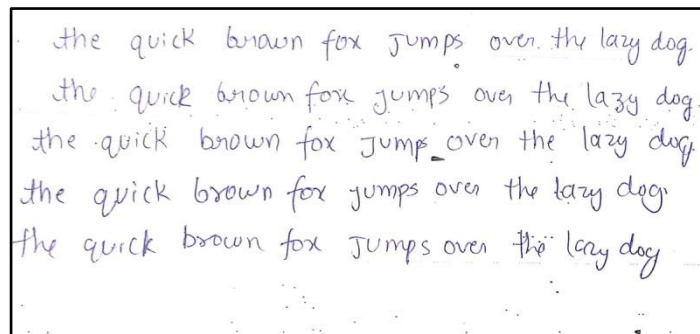 the quick brown fox Jumps over. the lazy dog.
the quick brown fox jumps over the lazy dog.
the quick brown fox Jumps over the lazy dog.
the quick brown fox jumps over the lazy dog.
the quick brown fox Jumps over the lazy dog